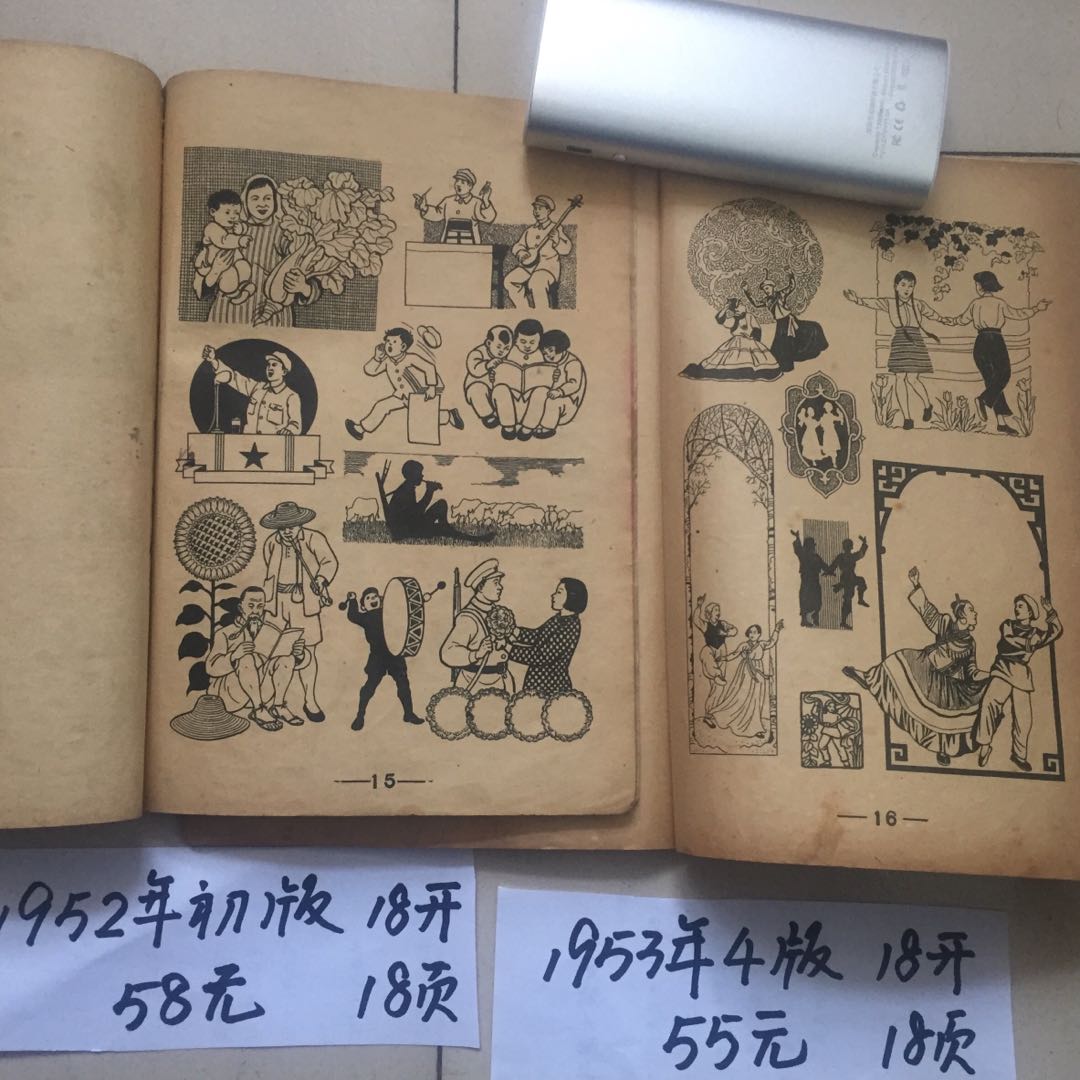 —15—
—16—
1952年初版 18开
58元 18页
1953年4版 18开
55元 18页